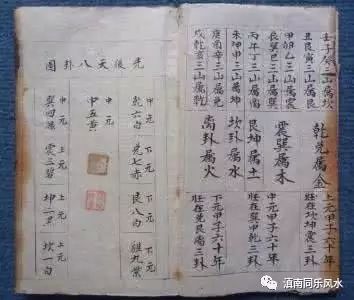 壬子癸三山属坎
丑艮寅三山属艮
甲卯乙三山属震
辰巽巳三山属巽
丙午丁三山属离
未坤申三山属坤
庚酉辛三山属兑
戌乾亥三山属乾
乾兑属金
震巽属木
艮坤属土
坎卦属水
离卦属火
上元甲子六十年
旺在坎坤震三卦
中元甲子六十年
旺在巽中乾三卦
下元甲子六十年
旺在兑艮离三卦
先後天八卦图
中元 下元 下元 下元
乾六白 兑七赤 艮八白 离九紫
中元
中五黄
中元 上元 上元 上元
巽四绿 震三碧 坤二黑 坎一白
滇南同乐风水